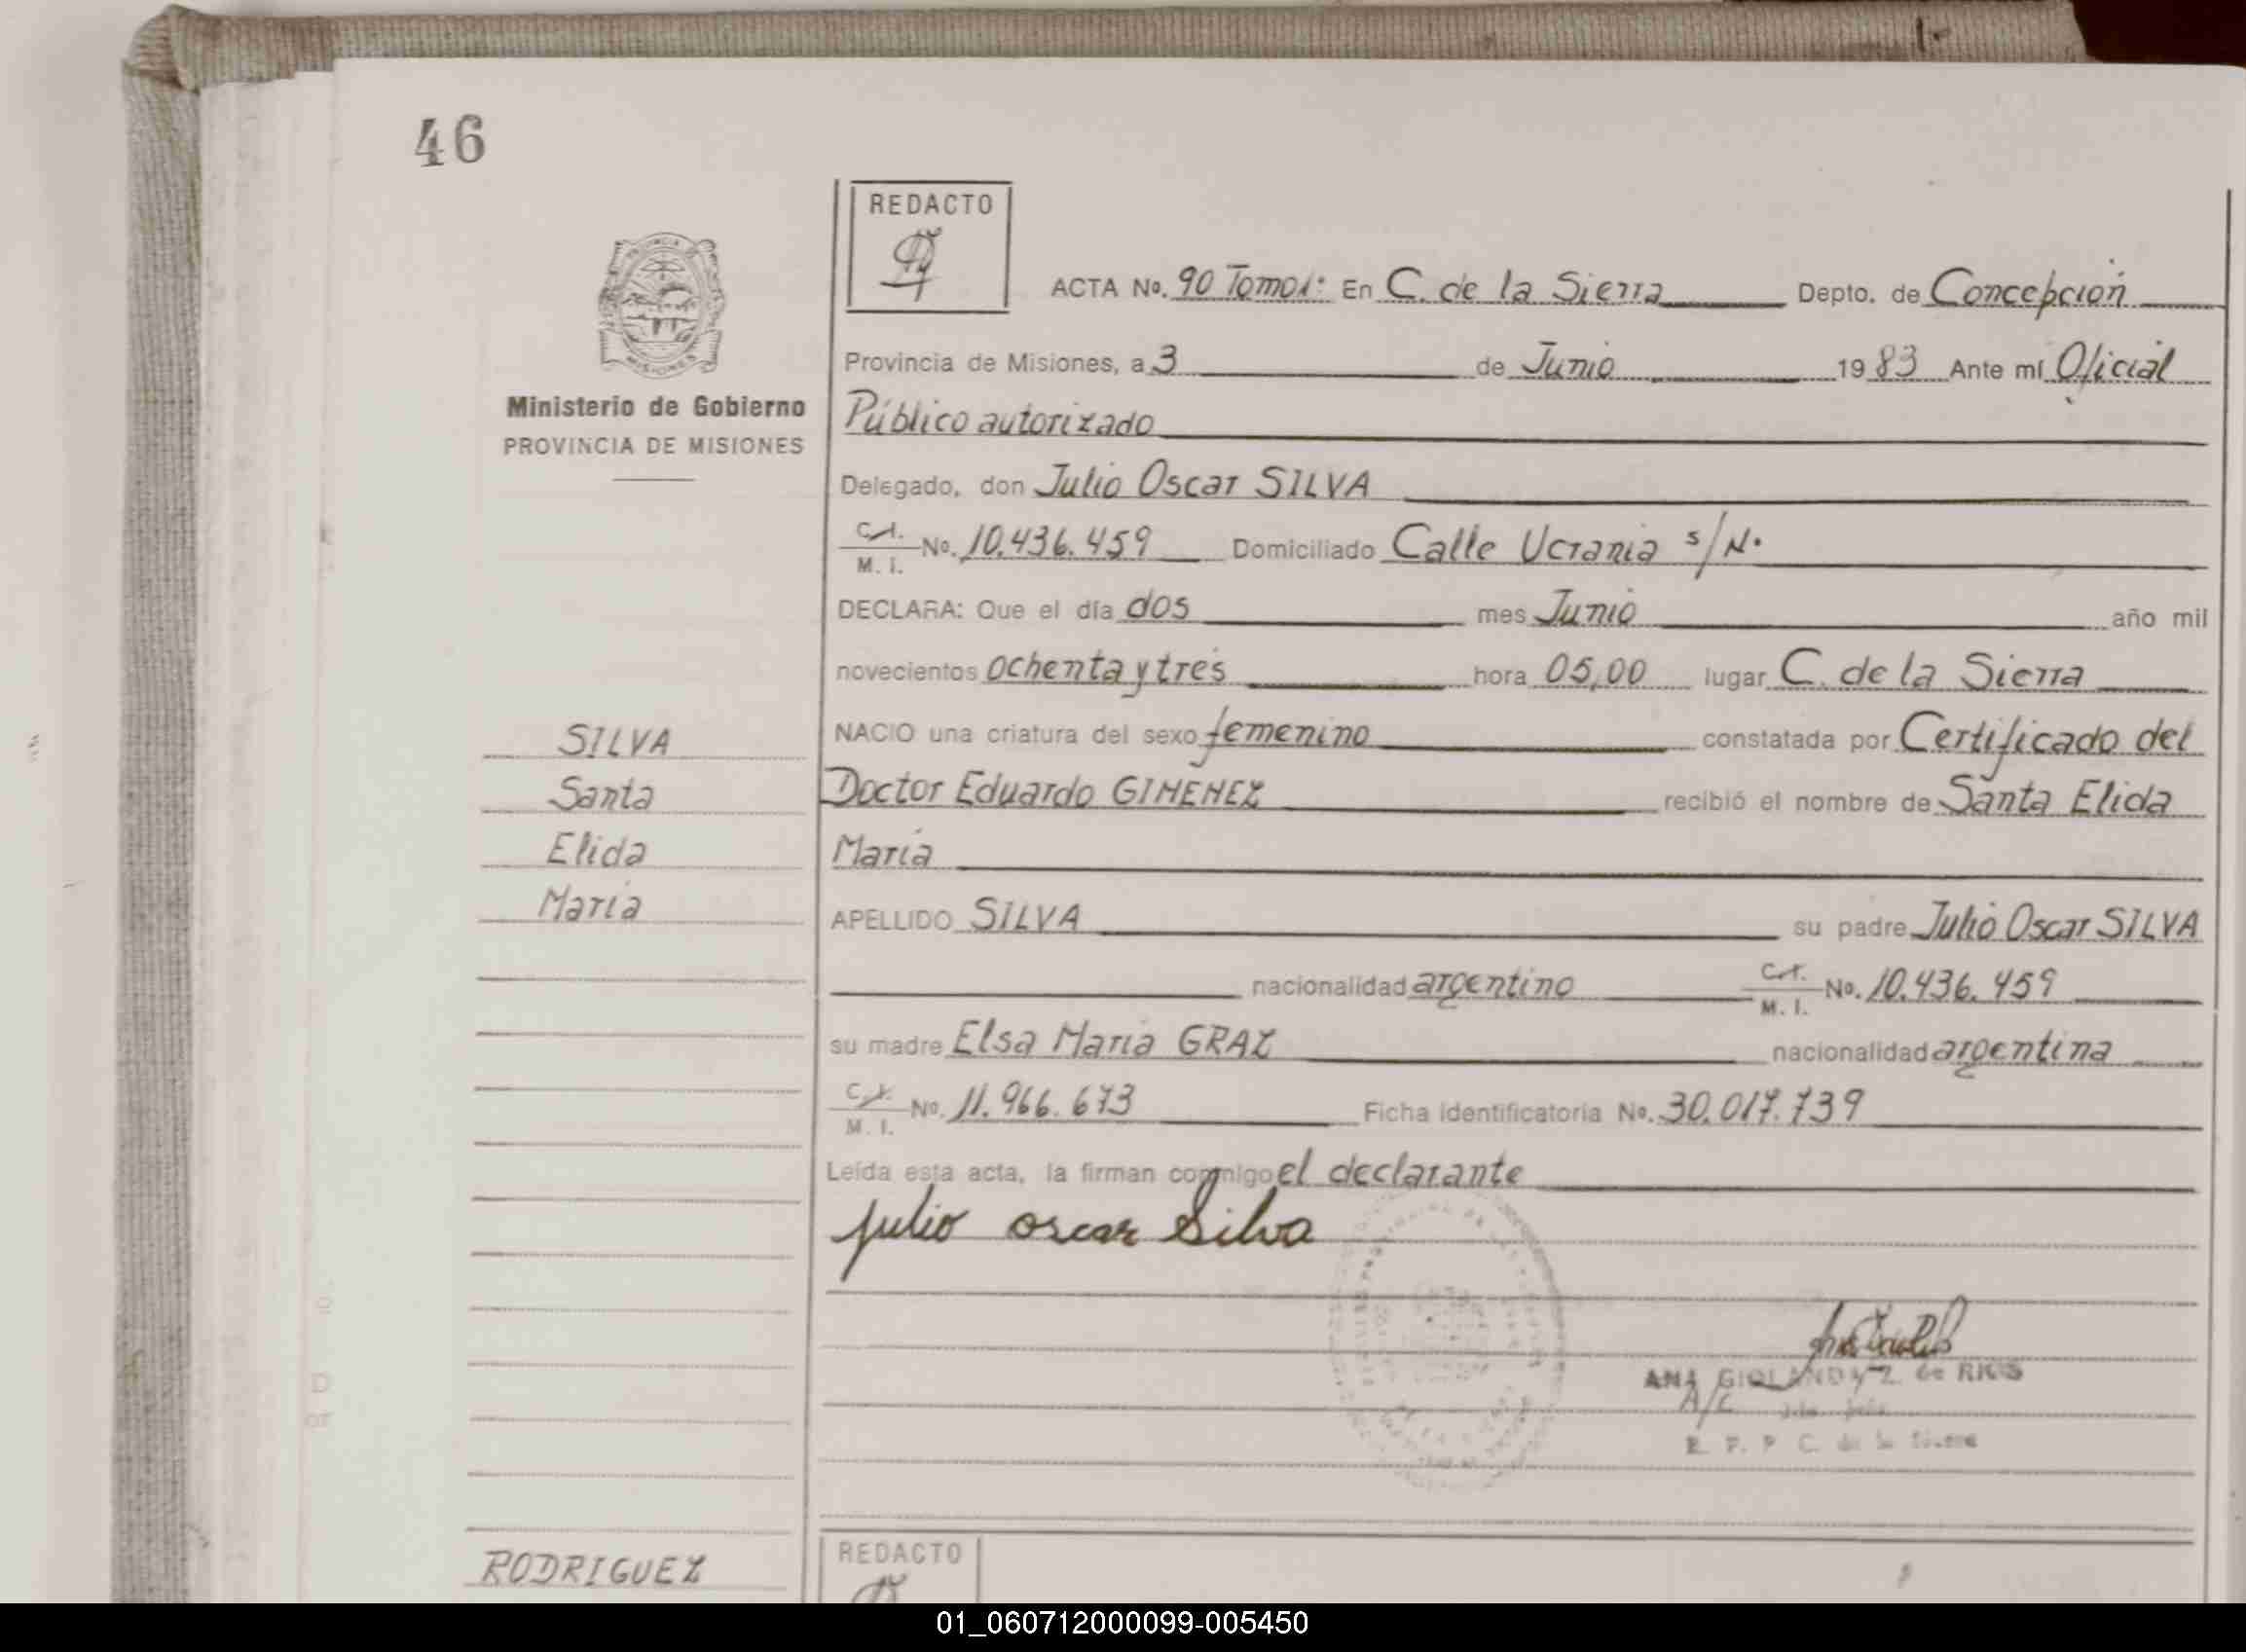 46
REDACTO
PROVINCIA DE
MISIONES
Ministerio de Gobierno
PROVINCIA DE MISIONES
ACTA No. 90 Tomo 1: En C. de la Sierra Depto. de Concepción
Provincia de Misiones, a 3 de Junio 1983 Ante mí Oficial
Público autorizado
Delegado, don Julio Oscar SILVA
C.I. M. I. No. 10.436.459 Domiciliado Calle Ucrania s/N.
DECLARA: Que el día dos mes Junio año mil
novecientos ochenta y tres hora 05,00 lugar C. de la Sierra
NACIO una criatura del sexo femenino constatada por Certificado del
Doctor Eduardo GIMENEZ recibió el nombre de Santa Elida
María
APELLIDO SILVA su padre Julio Oscar SILVA
nacionalidad argentino C.I. M. I. No. 10.436.459
su madre Elsa María GRAZ nacionalidad argentina
C.I. M. I. No. 11.966.673 Ficha Identificatoria No. 30.017.739
Leída esta acta, la firman conmigo el declarante
julio oscar Silva
ANA GIOLANDA Z. de RIOS
A/C
R. P. P C. de la Sierra
SILVA
Santa
Elida
María
RODRIGUEZ
REDACTO
01_060712000099-005450